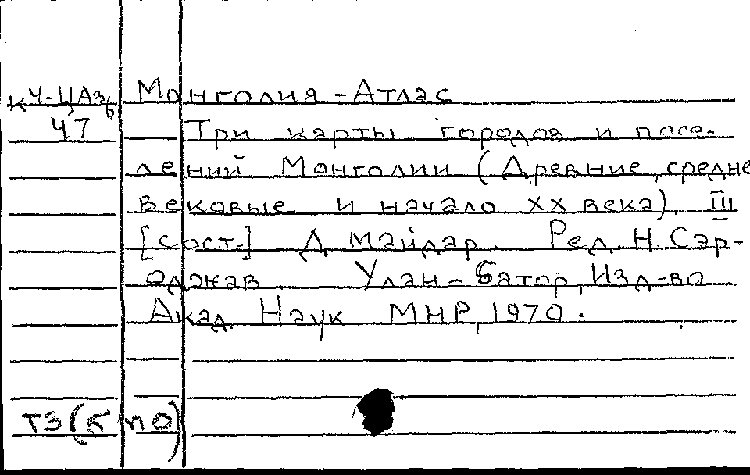 КЧ-ЦАзб Монголия - Атлас
Ц7 Три карты городов и посе-
лений Монголии (Древние, средне
вековые и начало XX века) III
[сост.] Д. Майдар. Ред. Н. Сэр-
оджав. Улан-Батор, Изд-во
Акад. Наук МНР, 1970.
ТЗ(5 ПО)